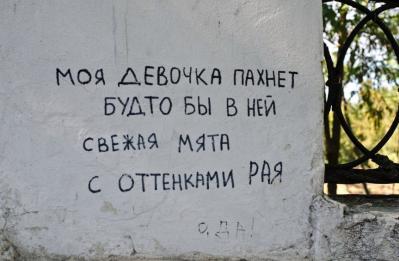 МОЯ ДЕВОЧКА ПАХНЕТ
БУДТО БЫ В НЕЙ
СВЕЖАЯ МЯТА
С ОТТЕНКАМИ РАЯ
О, ДА!